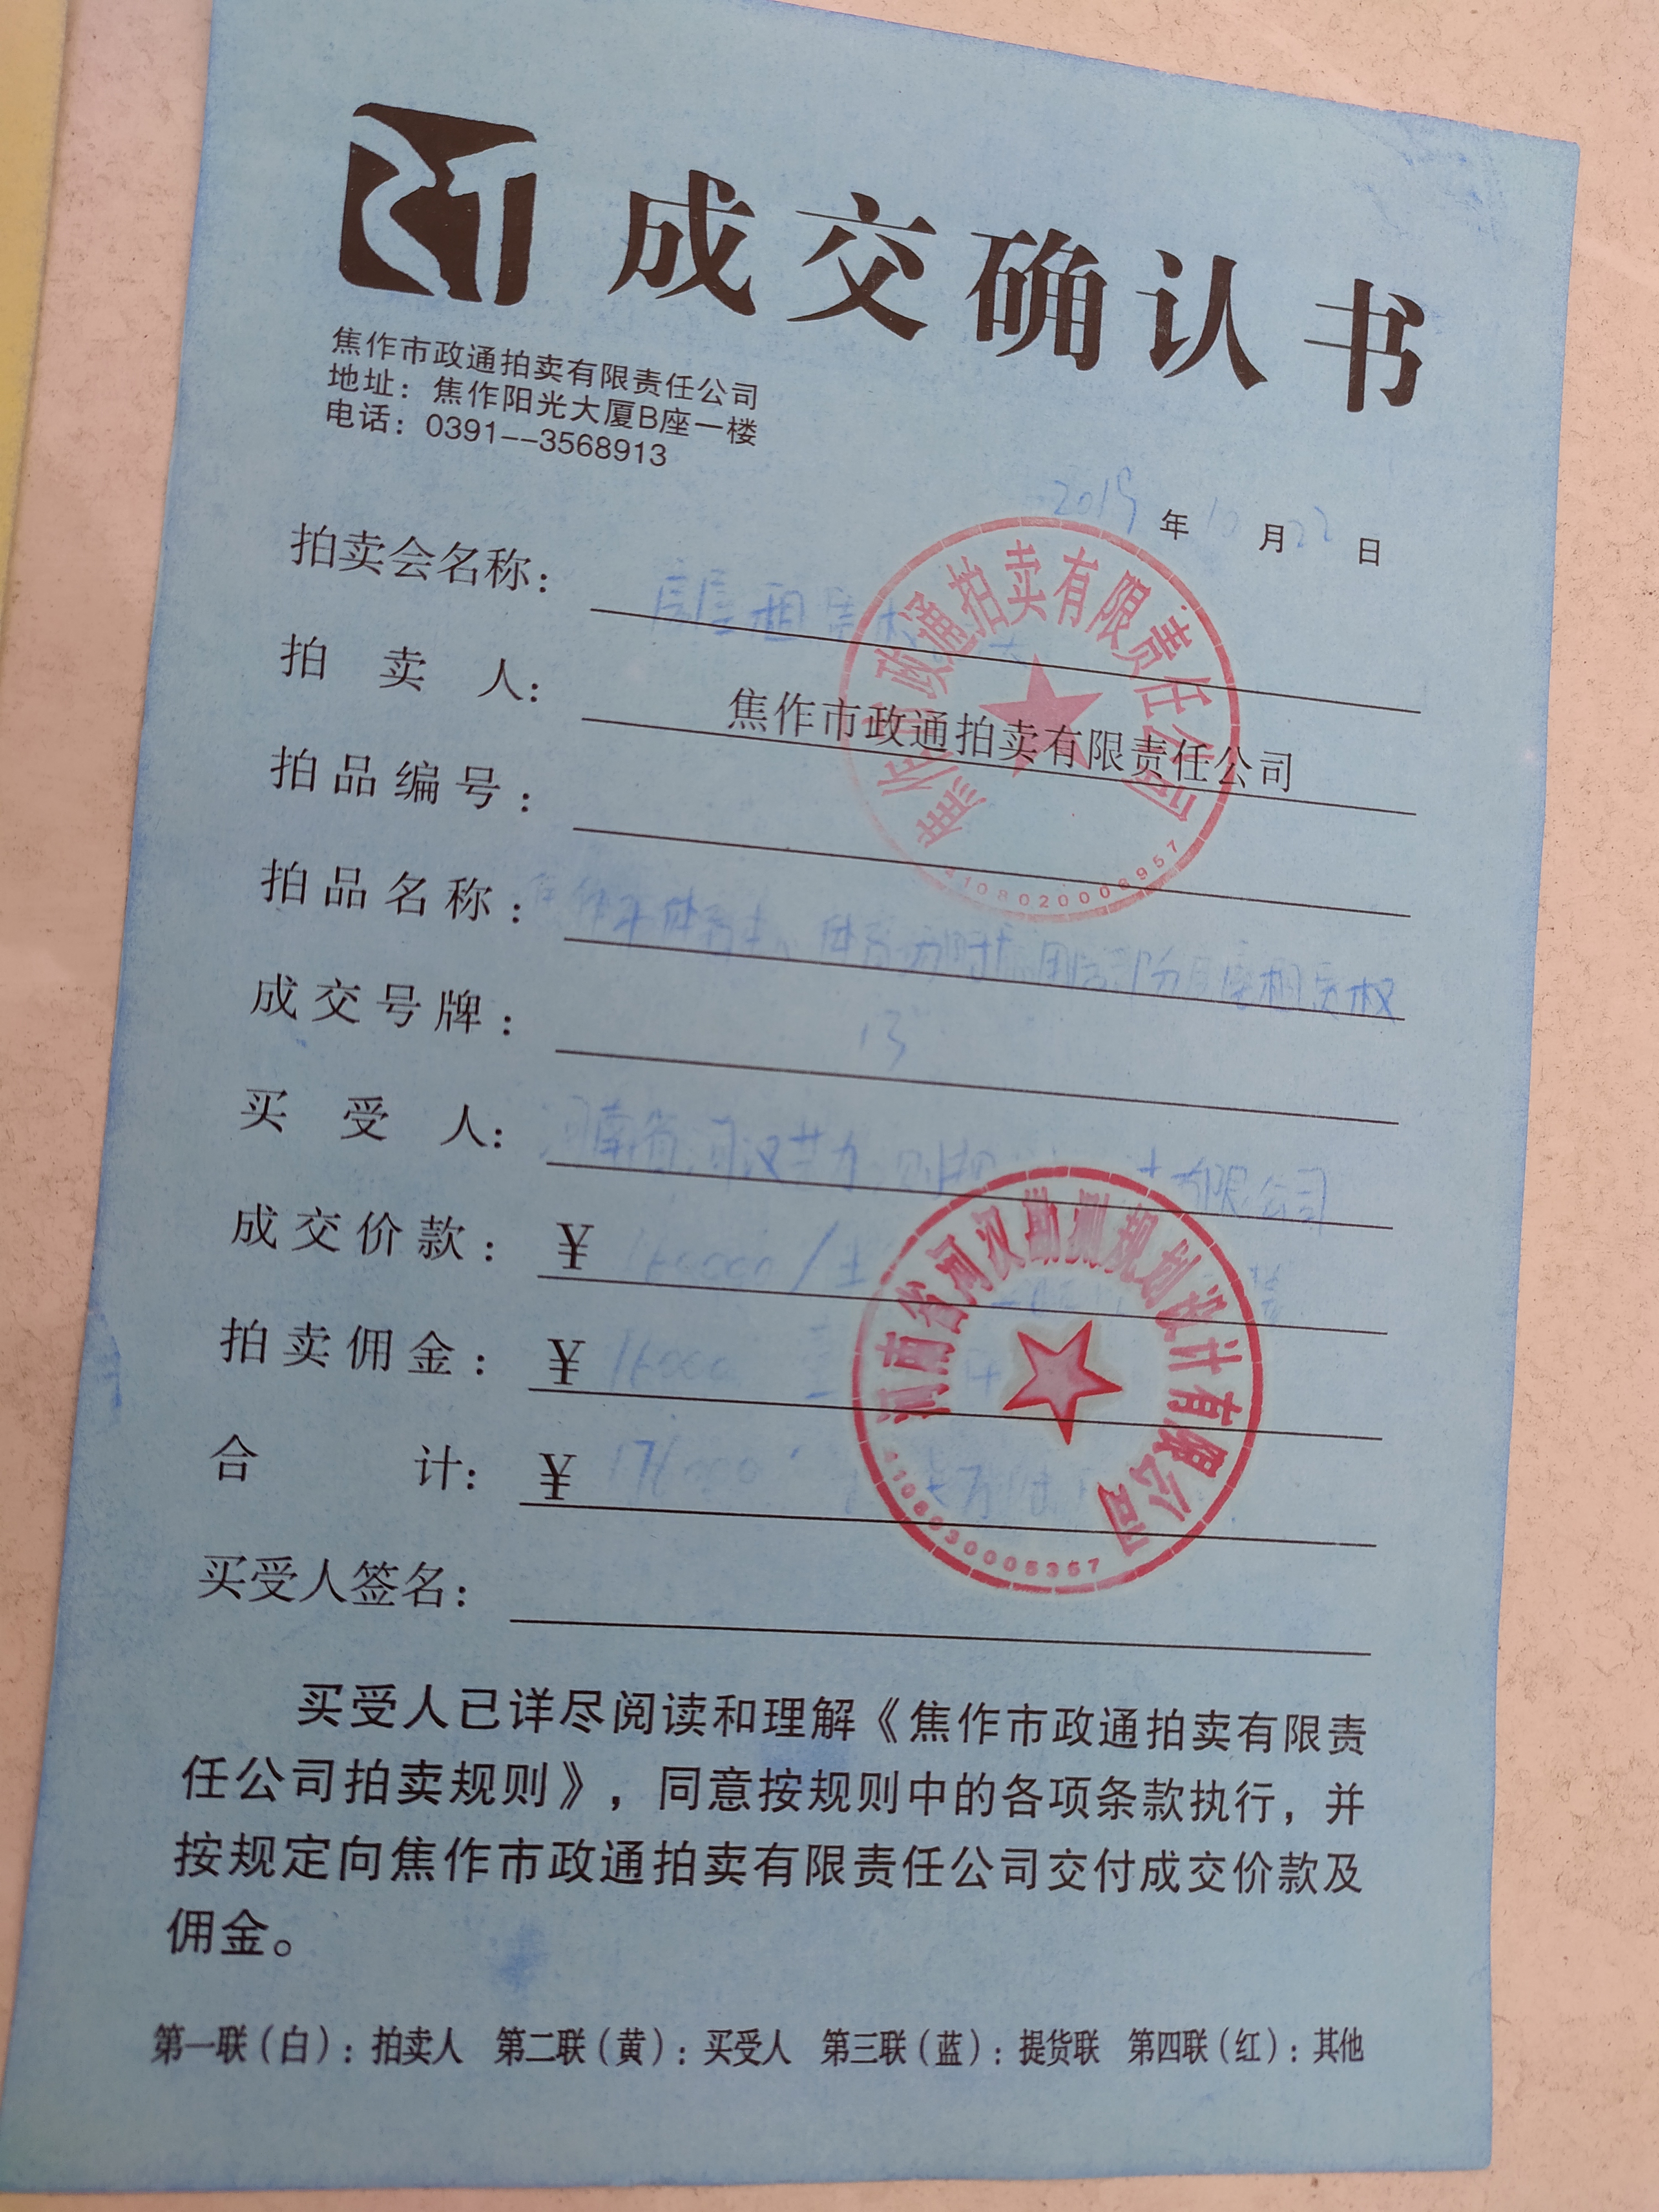 成交确认书
焦作市政通拍卖有限责任公司
地址：焦作阳光大厦B座一楼
电话：0391--3568913
2019年10月22日
拍卖会名称：房屋租赁权
拍卖人：焦作市政通拍卖有限责任公司
拍品编号：
拍品名称：焦作市体育 体育场 部分房屋租赁权
成交号牌：13
买受人：河南省河汉 有限公司
成交价款：¥160000/
拍卖佣金：¥16000
合计：¥176000
买受人签名：
焦作市政通拍卖有限责任公司
河南省河汉勘测规划设计有限公司
买受人已详尽阅读和理解《焦作市政通拍卖有限责
任公司拍卖规则》，同意按规则中的各项条款执行，并
按规定向焦作市政通拍卖有限责任公司交付成交价款及
佣金。
第一联（白）：拍卖人 第二联（黄）：买受人 第三联（蓝）：提货联 第四联（红）：其他